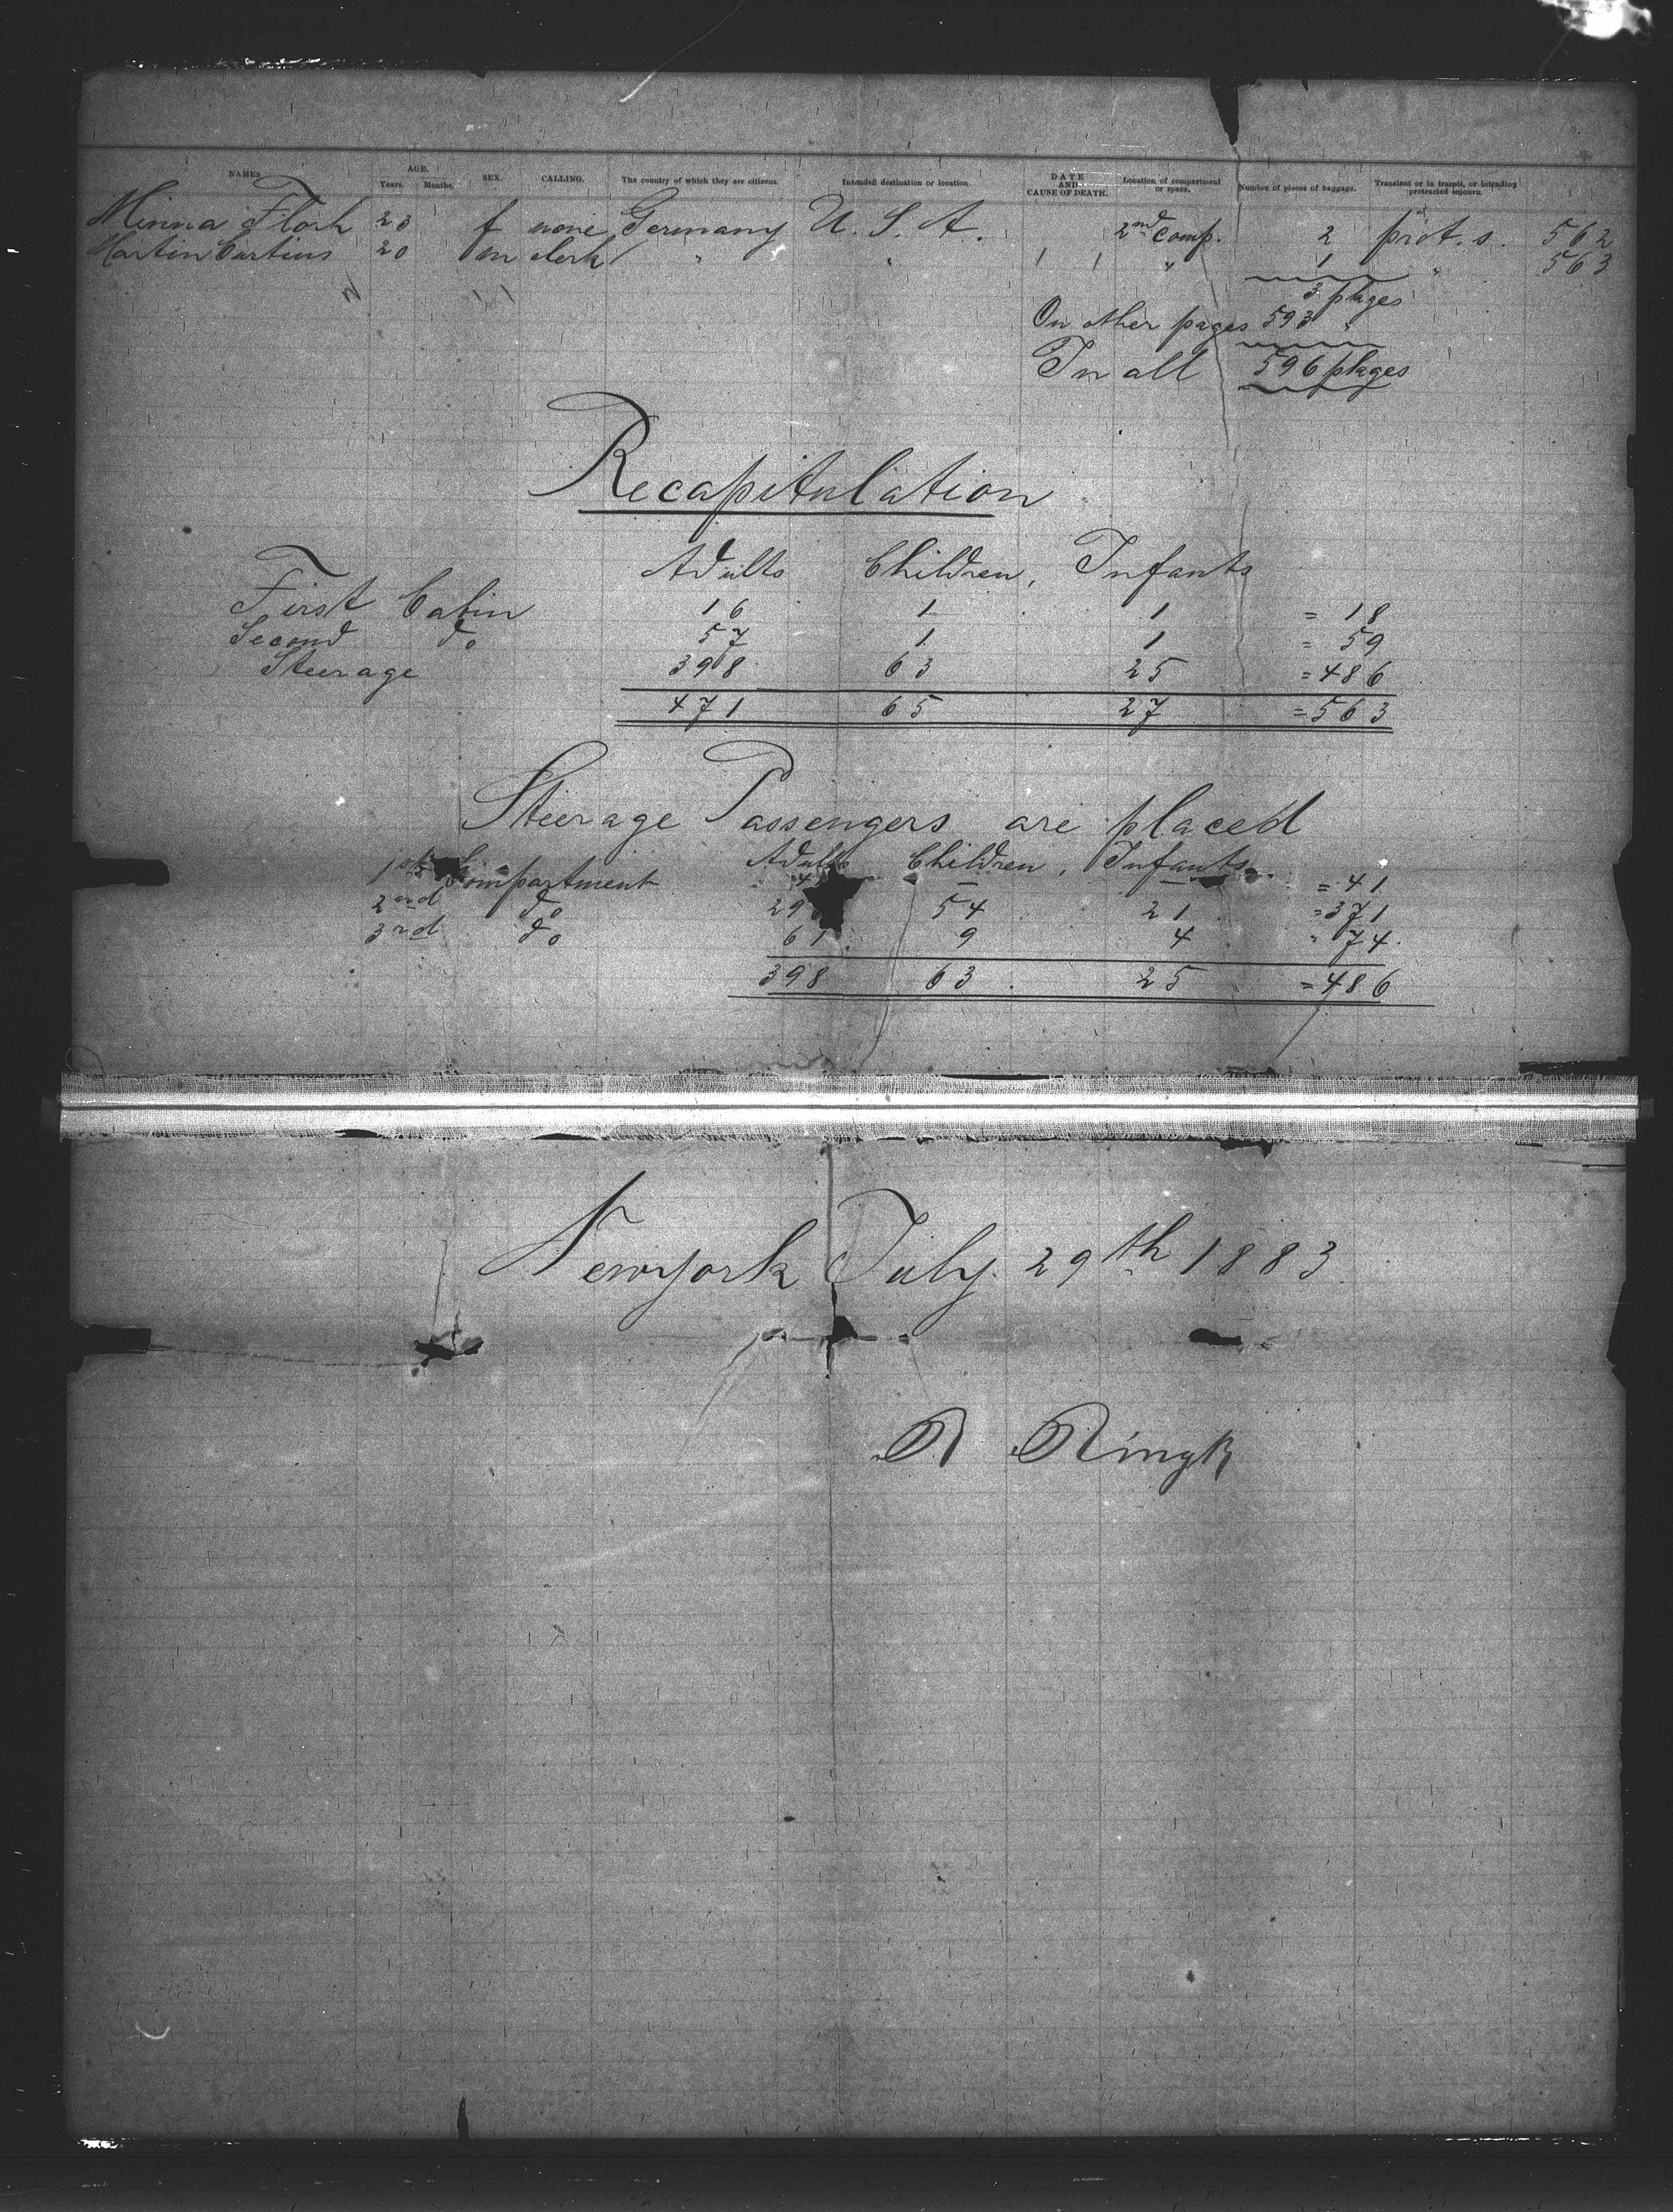 NAMES. AGE. Years. Months. SEX. CALLING. The country of which they are citizens. Intended destination or location. DATE AND CAUSE OF DEATH. Location of compartment or space. Number of pieces of baggage. Transient or in transit, or intending protracted sojourn.
Minna Flosh 23 f none Germany U. S. A. 2nd Comp. 2 prot. s. 562
Martin Curtius 20 m clerk " " " 1 " 563
3 pkges
On other pages 593 "
In all 596 pkges
Recapitulation
Adults Children, Infants
First Cabin 16 1 1 = 18
Second do 57 1 1 = 59
Steerage 398 63 25 = 486
471 65 27 = 563
Steerage Passengers are placed
Adults Children, Infants
1st Compartment 4 — — = 41
2nd do 29 54 21 = 371
3rd do 61 9 4 " 74.
398 63 25 = 486
Newyork July 29th 1883
R Ringk